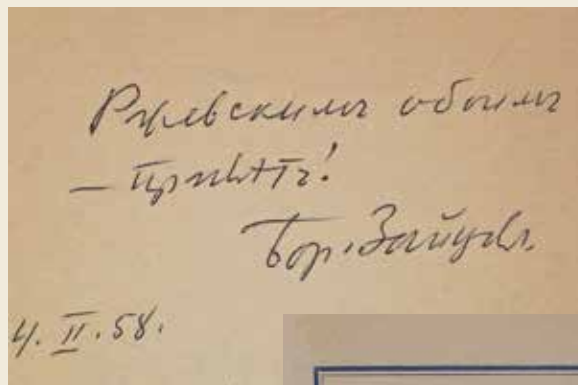 Ржевскимъ обоимъ
— привѣтъ!
Бор. Зайцев.
4. II. 58.